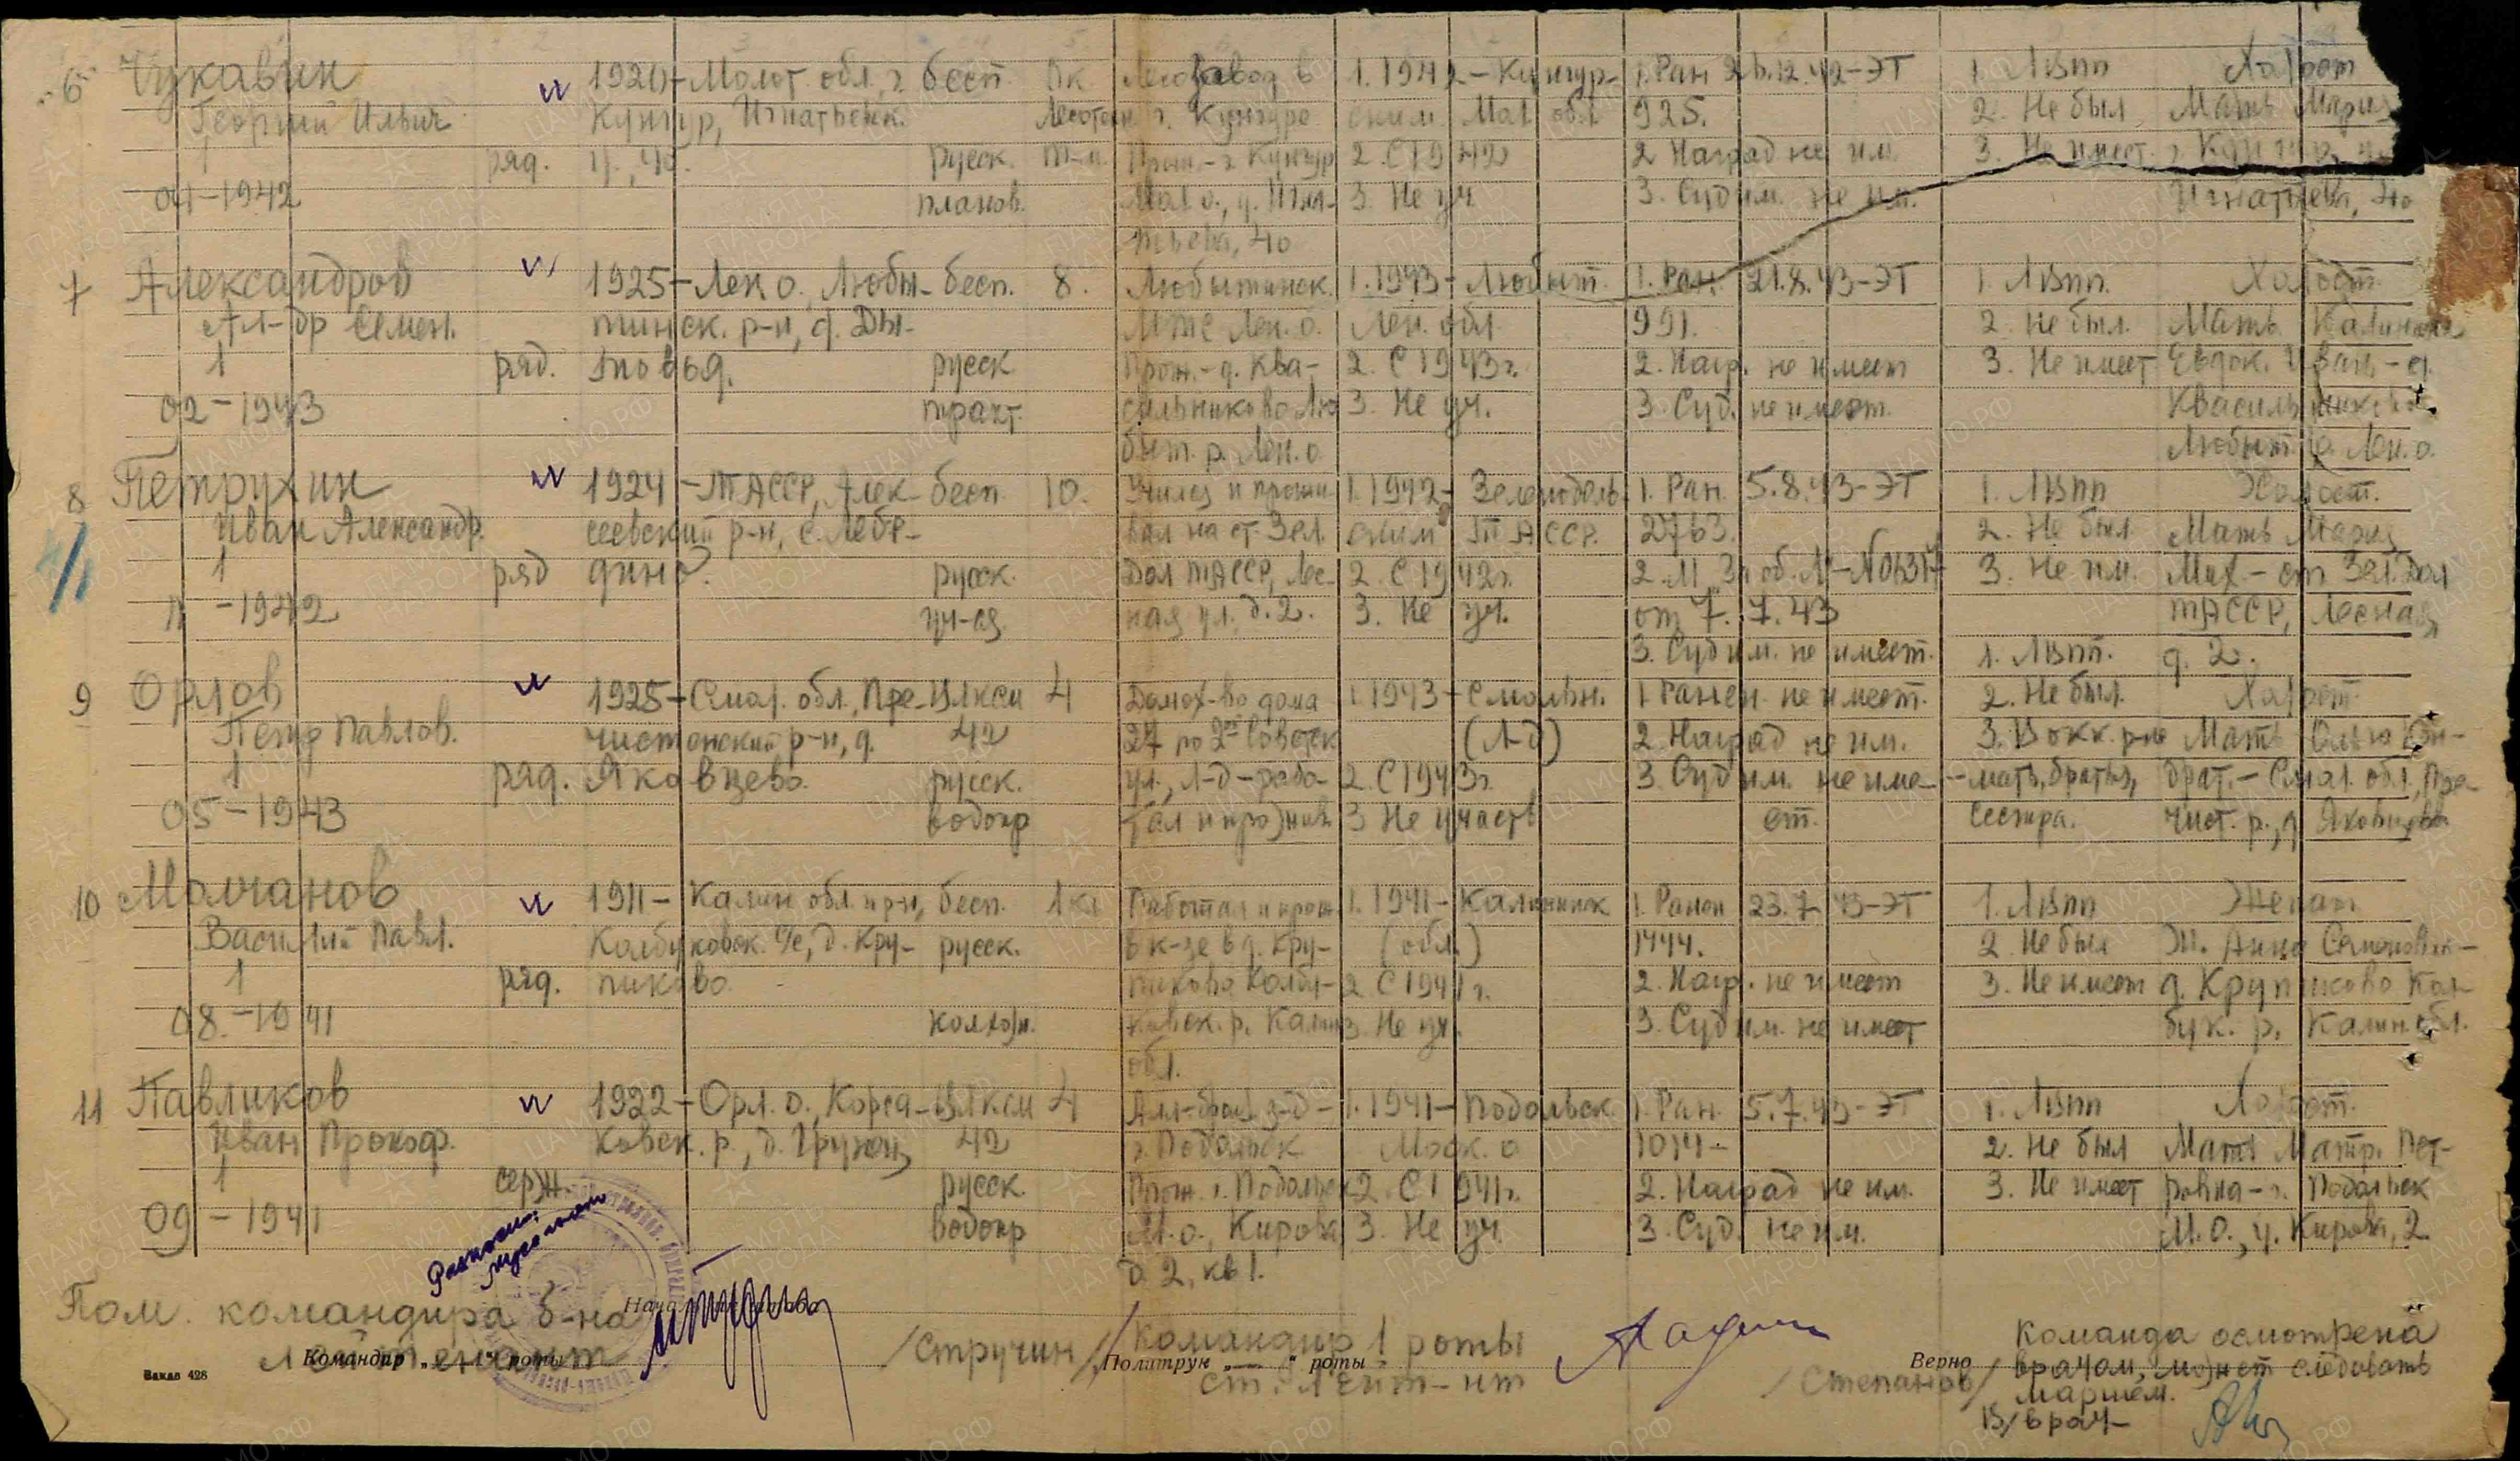 "6" Чукавин 1920 - Молот. обл., г. бесп. Лесозавод в 1. 1942 - Кунгур- 1. Ран 26.12.42 - ЭТ 1. ЛВПП Холост
Георгий Ильич Кунгур, Игнатьевск. г. Кунгуре ским Мол обл 925. 2. Не был Мать Мария
1 ряд. у., 40. русск. Прож. - г. Кунгур 2. С 1942 2 Наград не им. 3. Не имеет г. Кунгур, у.
04-1942 планов. Мол о., у. Игна- 3. Не уч. 3. Судим. не им. Игнатьева, 40
тьева, 40
7 Александров 1925 - Лен. о. Любы- бесп. 8. Любытинск. 1. 1943 - Любыт. 1. Ран. 21.8.43 - ЭТ 1. ЛВПП. Холост.
Ал-др Семен. тинск. р-н, д. Ды- МТС Лен. о. Лен. обл 991. 2. Не был. Мать
1 ряд. русск Прож. - д. Ква- 2. С 1943 г. 2. Нагр. не имеет 3. Не имеет Евдок. Иван. - д.
02-1943 тракт. сильниково Лю 3. Не уч. 3. Суд. не имеет. Квасильниково
быт. р. Лен. о. Любыт. р. Лен. о.
8 Петрухин 1924 - ТАССР, Алек- бесп. 10. Училс и прожи- 1. 1942 - Зеленодоль- 1. Ран. 5.8.43 - ЭТ 1. ЛВПП Холост.
Иван Александр. сеевский р-н, с. Лебе- вал на ст. Зел. ским ТАССР. 2763. 2. Не был Мать Мария
1 ряд дино. русск. Дол ТАССР, Лес- 2. С 1942 г. 3. Не им. Мих - ст. Зел. Дол
11-1942 уч-ся ная ул. д. 2. 3. Не уч. от 7.7.43 ТАССР, Лесная,
3. Судим. не имеет. 1. ЛВПП. д. 2.
9 Орлов 1925 - Смол. обл., Пре- ВЛКСМ 4 Домох-во дома 1. 1943 - Смольн. 1. Ранен. не имеет. 2. Не был. Холост
Петр Павлов. чистенский р-н, д. 42 27 по 2ой Советск (Л-д) 2. Наград не им. 3. В окк. р-не Мать
1 ряд. Яковцево. русск. ул., Л-д - рабо- 2. С 1943 г. 3. Судим. не име- - мать, братья, Смол. обл., Пре-
05-1943 водопр тал и прожив 3 Не участв ет. сестра. чист. р., д Яковцево
10 Молчанов 1911 - Калин обл. и р-н, бесп. 1 кл Работал и прож. 1. 1941 - Калининск 1. Ранен 23.7.43 - ЭТ 1. ЛВПП Женат
Василий Павл. Колбуковск. с/с, д. Кру- русск. в к-зе в д. Кру- (обл.) 1444. 2. Не был Ж. Анна Семеновна -
1 ряд. пиково. пиково Колбу- 2. С 1941 г. 2. Нагр. не имеет 3. Не имеет д. Крупиково Кол-
08-1941 колхозн. ковск. р. Калин 3. Не уч. 3. Судим. не имеет бук. р. Калин обл.
обл.
11 Павликов 1922 - Орл. о., Корса- ВЛКСМ 4 1. 1941 - Подольск. 1. Ран. 5.7.43 - ЭТ 1. ЛВПП Холост.
Иван Прокоф. ковск. р., д. 42 г. Подольск Моск. о 1014 - 2. Не был Мать Матр. Пет-
1 серж. русск. Прож. г. Подольск 2. С 1941 г. 2. Наград не им. 3. Не имеет ровна - г. Подольск
09-1941 водопр М. о., Кирова 3. Не уч. 3. Суд. не им. М. О., у. Кирова, 2.
д 2, кв 1.
Пом. командира б-на /Стручин/ Командир 1 роты Команда осмотрена
лейтенант Командир „ “ роты Политрук „ “ роты Верно врачом, может следовать
Заказ 428 ст. Лейт-нт /Степанов/ маршем.
В/врач -